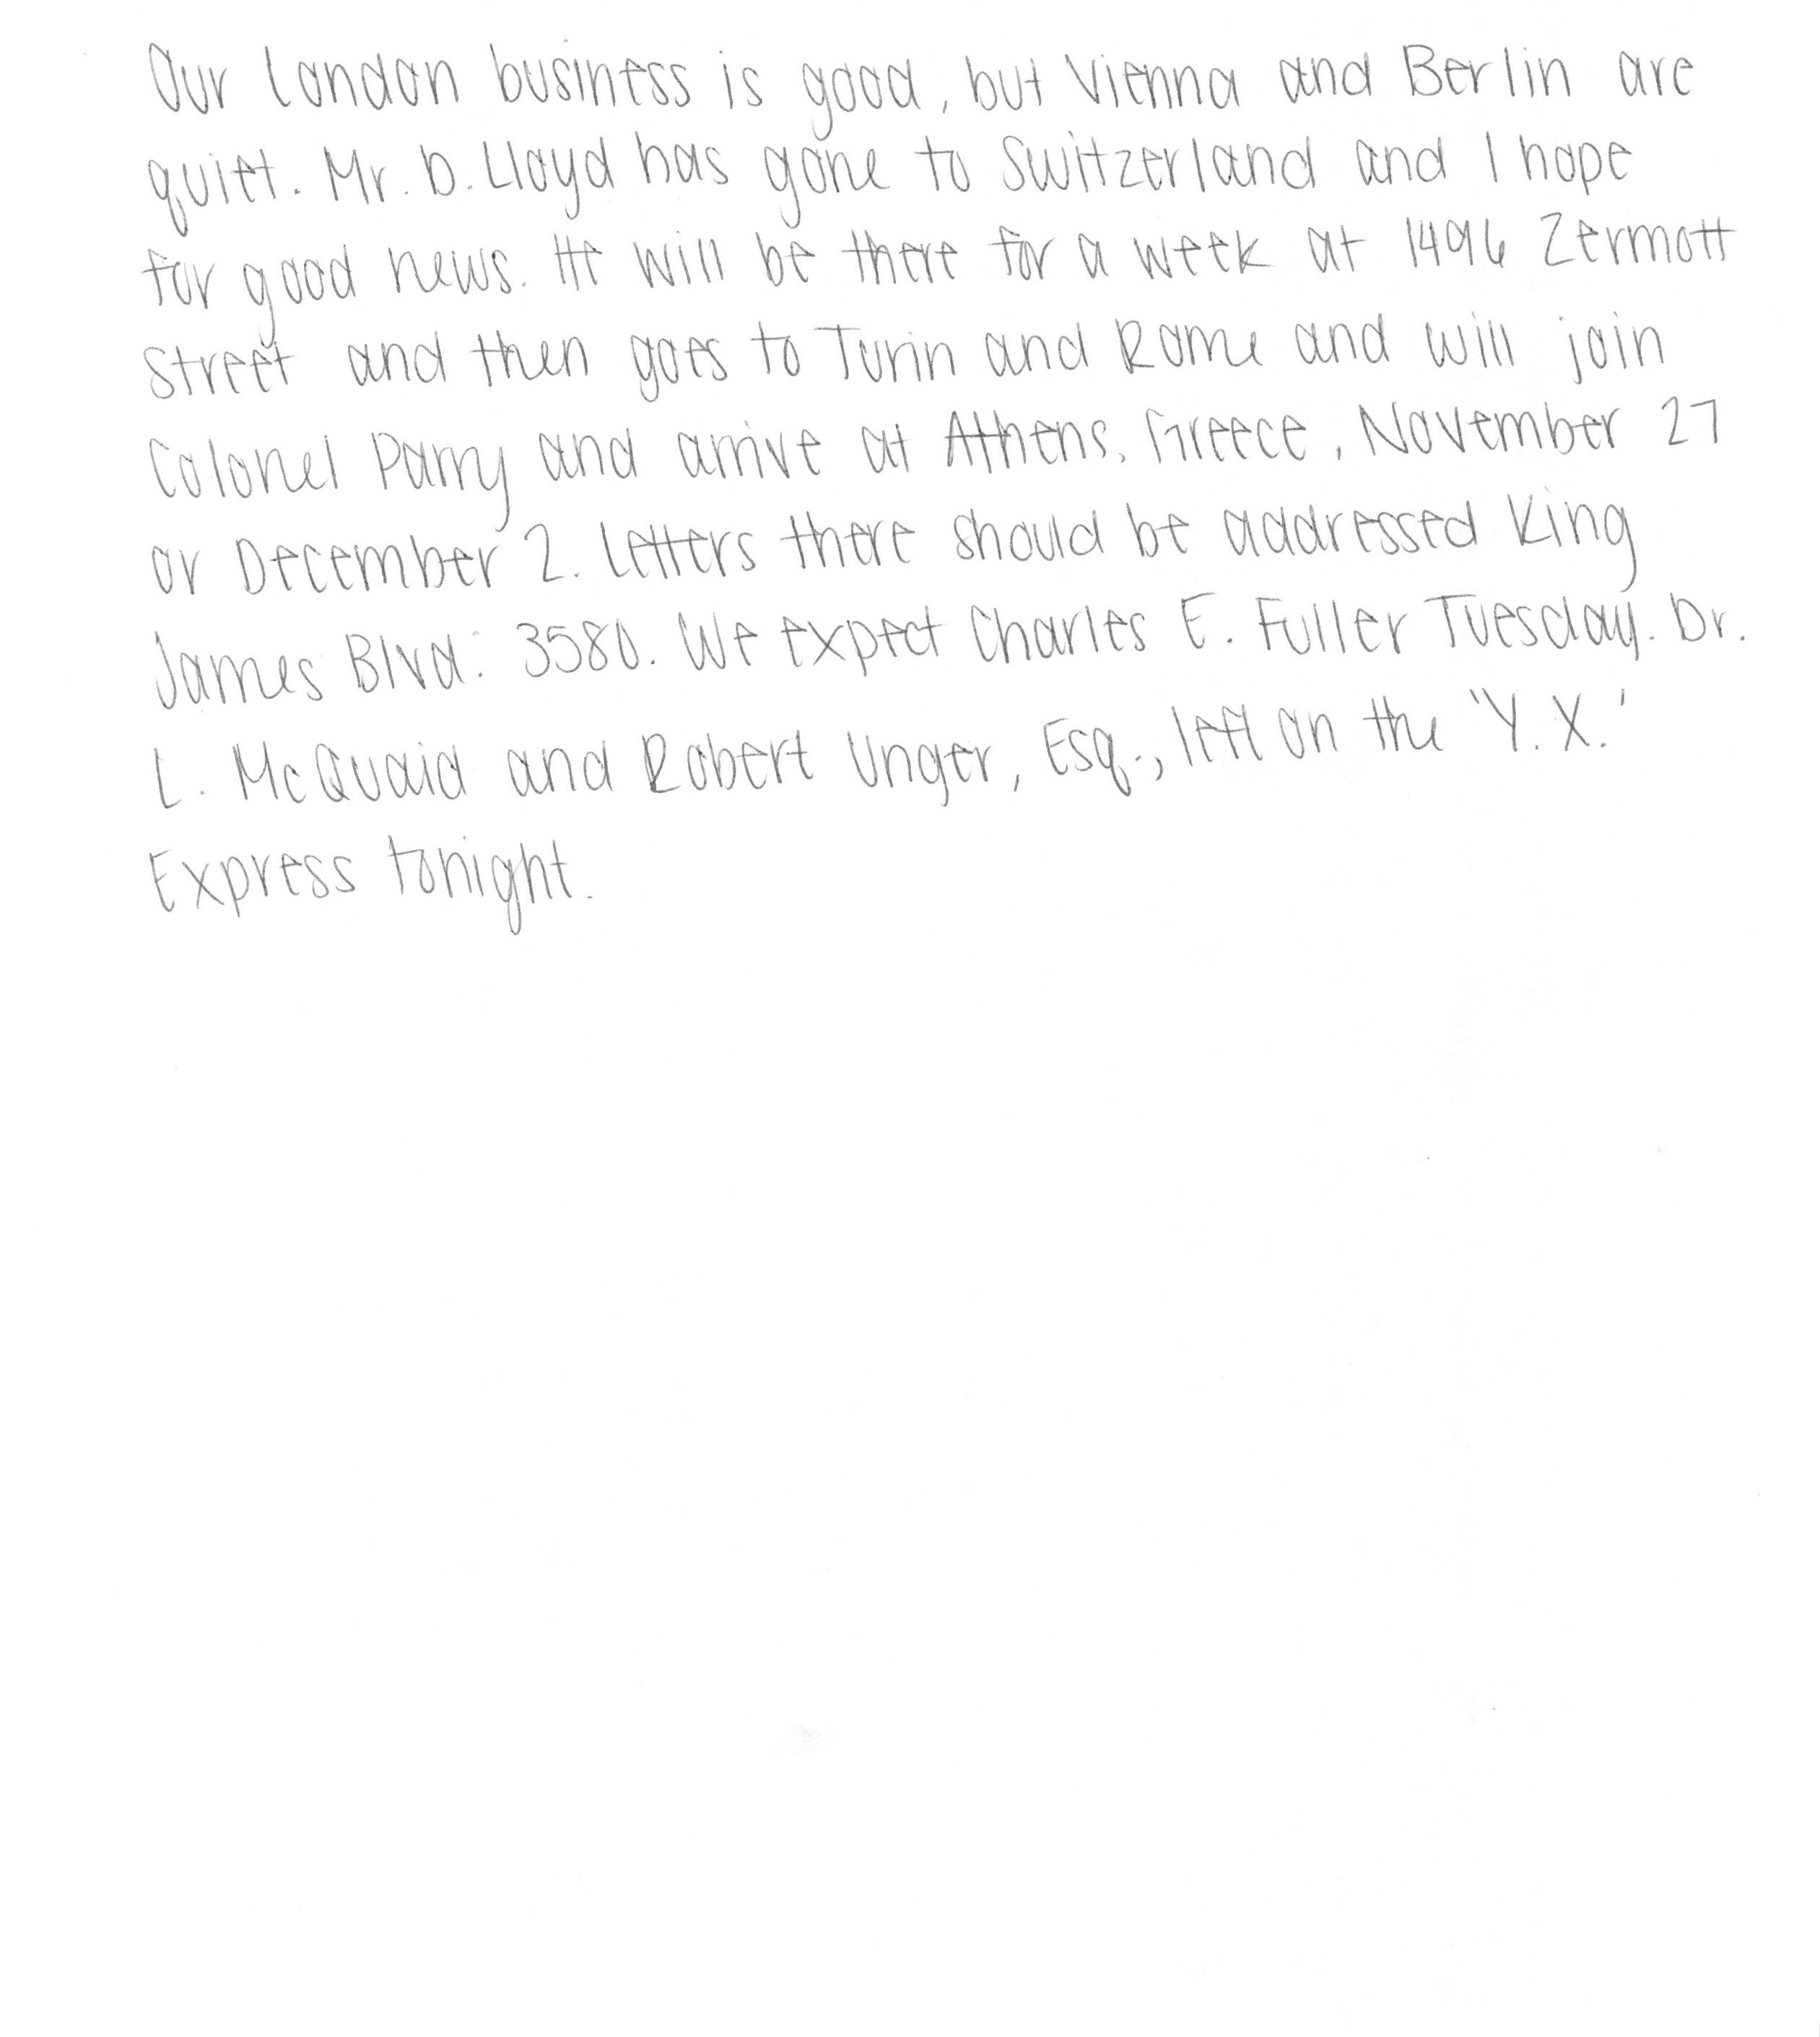 Our London business is good, but Vienna and Berlin are
quiet. Mr. D. Lloyd has gone to Switzerland and I hope
for good news. He will be there for a week at 1496 Zermott
Street and then goes to Turin and Rome and will join
Colonel Parry and arrive at Athens, Greece, November 27
or December 2. Letters there should be addressed King
James Blvd. 3580. We expect Charles E. Fuller Tuesday. Dr.
L. McQuaid and Robert Unger, Esq., left on the 'Y.X.'
Express tonight.